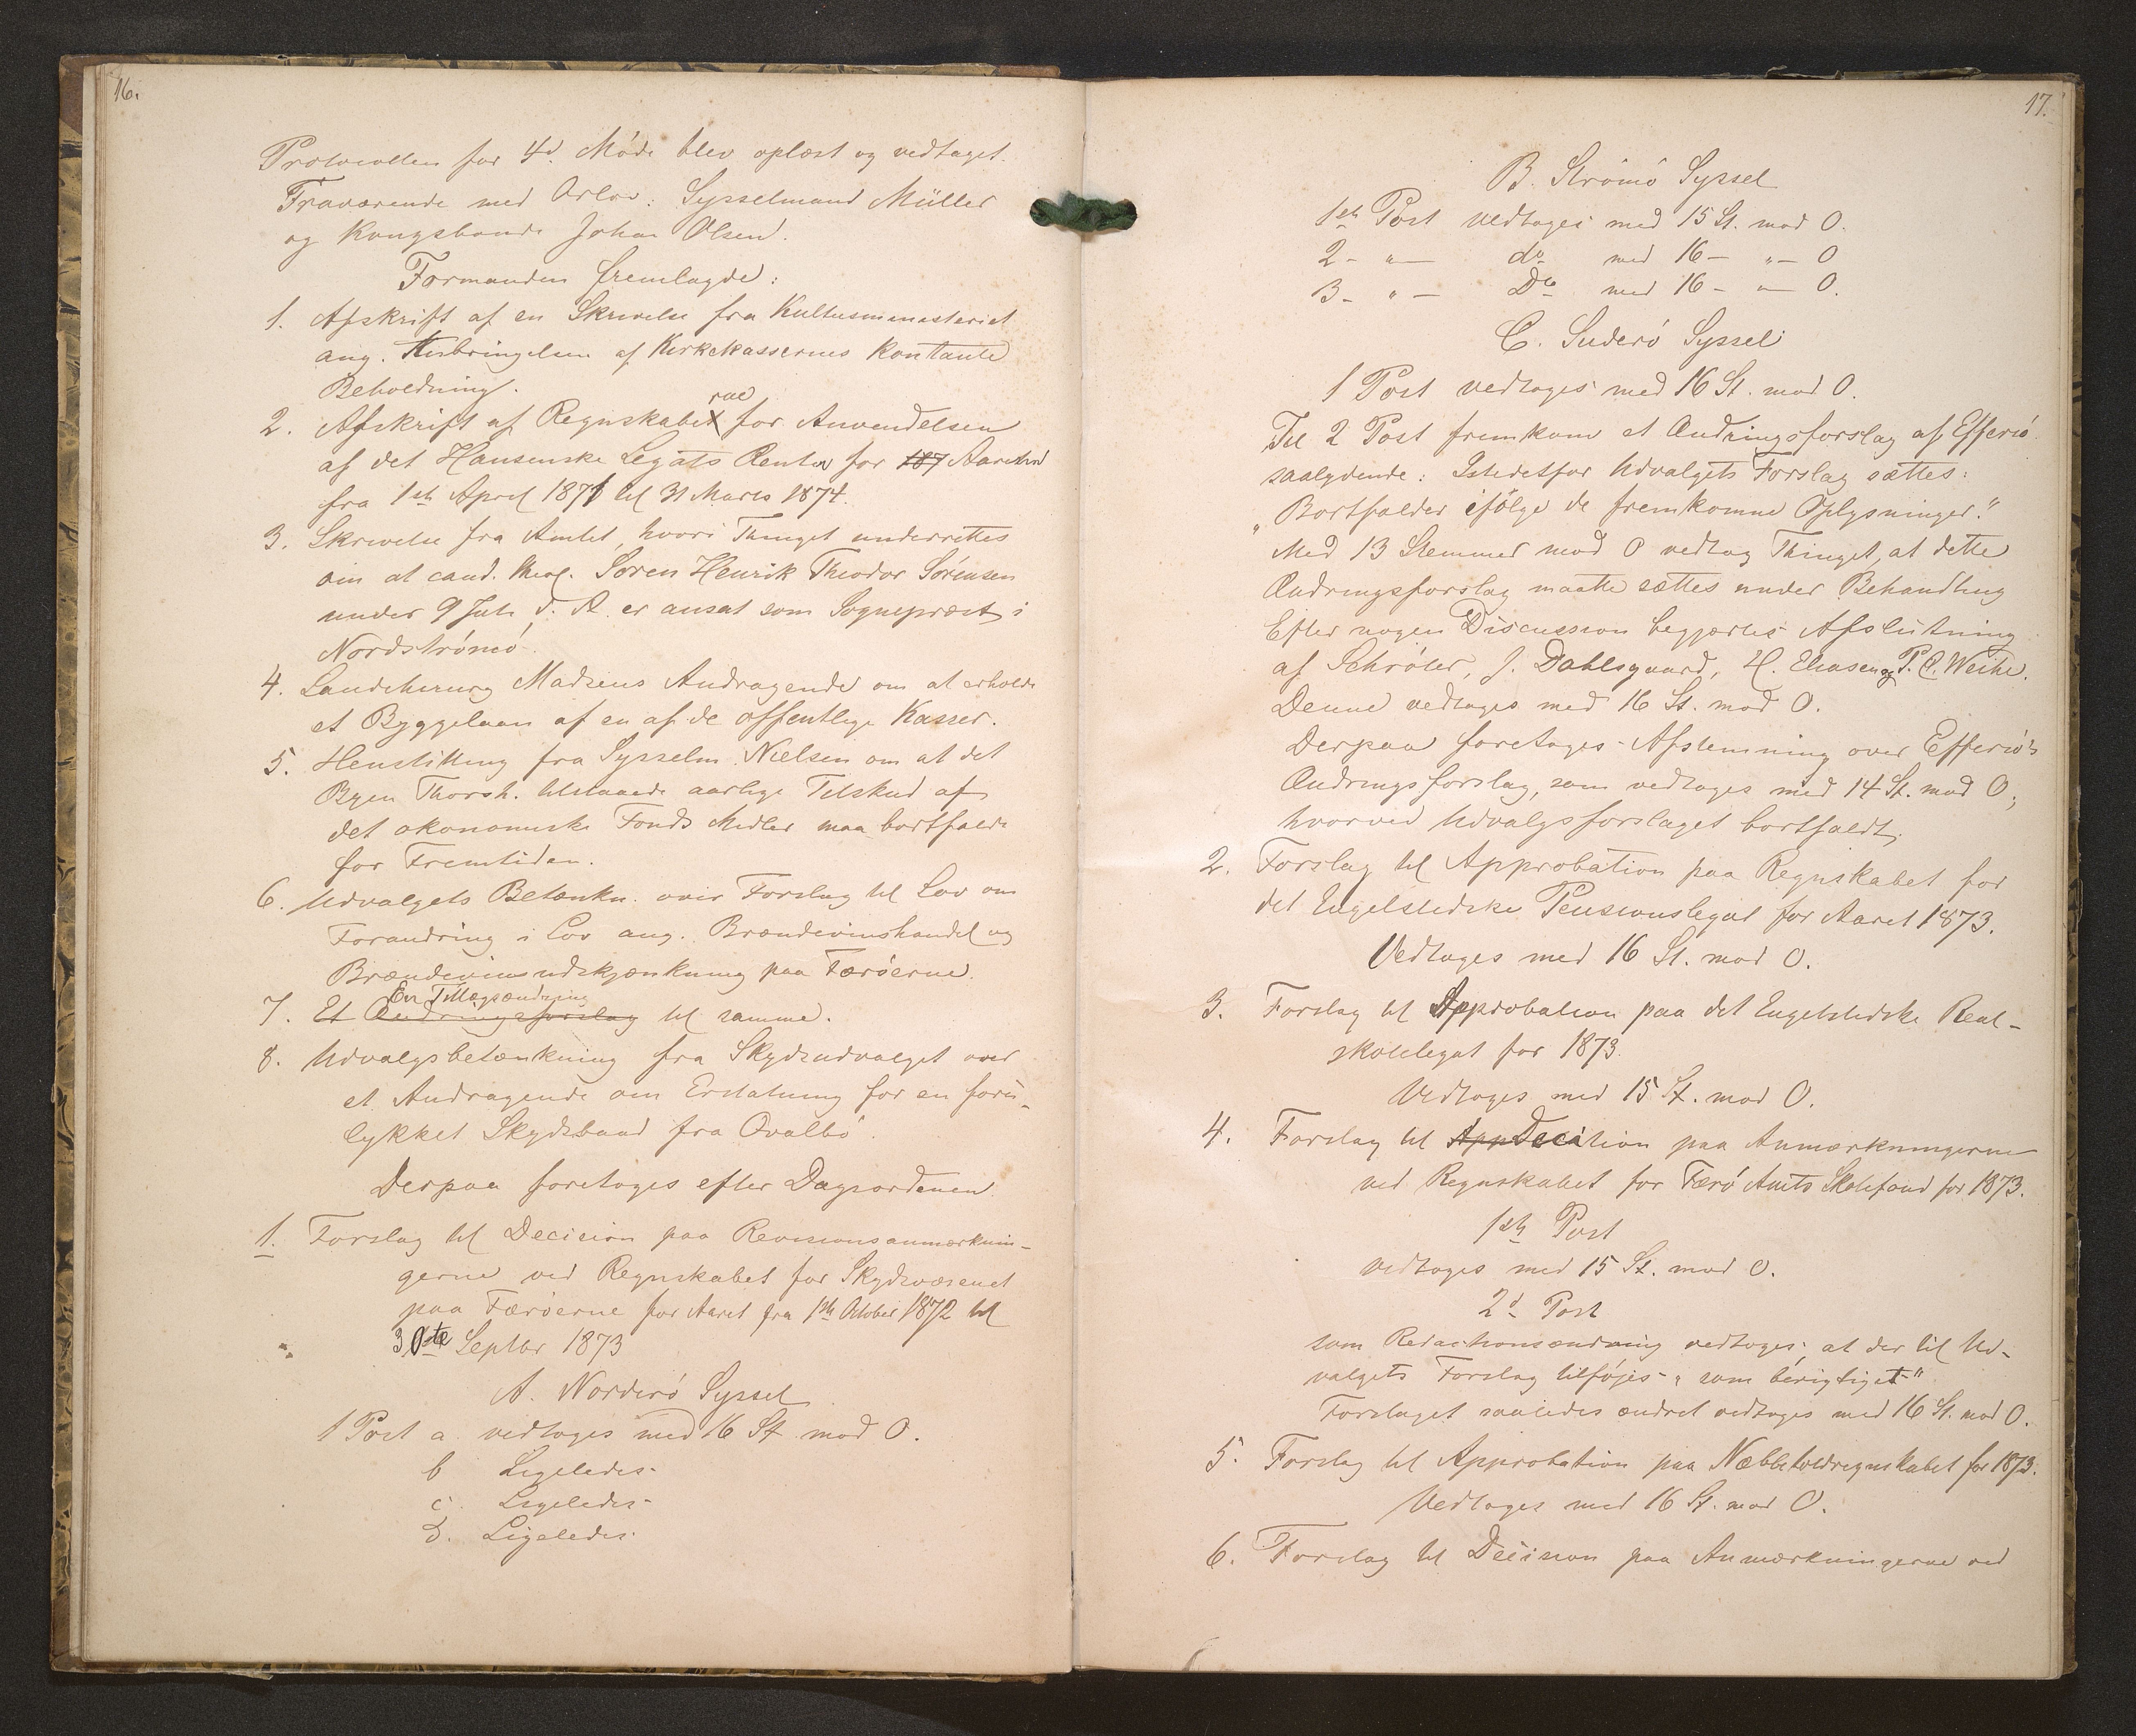 16.
Protocollen for 4d. Möde blev oplæst og vedtaget.
Fraværende med Orlov: Sysselmand Müller
og Kongsbonde Johan Olsen.
Formanden fremlagde:
1. Afskrift af en Skrivelse fra Kultusministeriet
ang. Frembringelsen af Kirkekassernes Kontante
Beholdning.
2. Afskrift af Regnskaberne for Anvendelsen
af det Hansenske Legats Renter for 187 Aarene
fra 1ste April 1871 til 31 Marts 1874.
3. Skrivelse fra Amtet, hvori Thinget underrettes
om at cand. theol. Sören Henrik Theodor Sörensen
under 9 Juli d. A. er ansat som Sognepræst i
Nordströmö.
4. Landchirurg Madsens Andragende om at erholde
et Byggelaan af en af de offentlige Kasser.
5. Henstilling fra Sysselm. Nielsen om at det
Byen Thorsh. tilstaaede aarlige Tilskud af
det økonomiske Fonds Midler maa bortfalde
for Fremtiden.
6. Udvalgets Betænkn. over Forslag til Lov om
Forandring i Lov ang. Brændeviinshandel og
Brændeviinsudskjænkning paa Færöerne.
En Tillægsændring
7. Et Ændringsforslag til samme.
8. Udvalgsbetænkning fra Skydsudvalget over
et Andragende om Erstatning for en foru-
lykket Skydsbaad fra Qvalbö.
Derpaa foretoges efter Dagsordenen
1. Forslag til Decision paa Revisionsanmærknin-
gerne ved Regnskabet for Skydsvæsenet
paa Færöerne for Aaret fra 1ste October 1872 til
30te Septbr 1873
A. Norderö Syssel
1 Post a. vedtoges med 16 St. mod 0.
b Ligeledes
c. Ligeledes
d. Ligeledes
17.
B. Strömö Syssel
1ste Post vedtoges med 15 St. mod 0.
2- "- do med 16- "- 0
3- "- Do med 16- "- 0.
C. Suderö Syssel
1 Post vedtoges med 16 St. mod 0.
Til 2 Post fremkom et Ændringsforslag af Effersö
saalydende: Istedetfor Udvalgets Forslag sættes:
"Bortfalder ifölge de fremkomne Oplysninger."
Med 13 Stemmer mod 0 vedtog Thinget, at dette
Ændringsforslag maatte sættes under Behandling
Efter nogen Discussion begjærtes Afslutning
af Schröter, J. Dahlsgaard, H. Eliasen og P. C. Weihe.
Denne vedtoges med 16 St. mod 0.
Derpaa foretoges Afstemning over Effersö's
Ændringsforslag, som vedtoges med 14 St. mod 0,
hvorved Udvalgsforslaget bortfaldt.
2. Forslag til Approbation paa Regnskabet for
det Engelstedske Pensionslegat for Aaret 1873.
Vedtoges med 16 St. mod 0.
3. Forslag til Approbation paa det Engelstedske Real-
skolelegat for 1873.
Vedtoges med 15 St. mod 0.
4. Forslag til App Decition paa Anmærkningerne
ved Regnskabet for Færö Amts Skolefond for 1873.
1ste Post
vedtoges med 15 St. mod 0.
2d Post
som Redactionsændring vedtoges, at der til Ud-
valgets Forslag tilföjes "som berigtiget"
Forslaget saaledes ændret vedtoges med 16 St. mod 0.
5. Forslag til Approbation paa Næbbetoldregnskabet for 1873.
Vedtoges med 16 St. mod 0.
6. Forslag til Decision paa Anmærkningerne ved